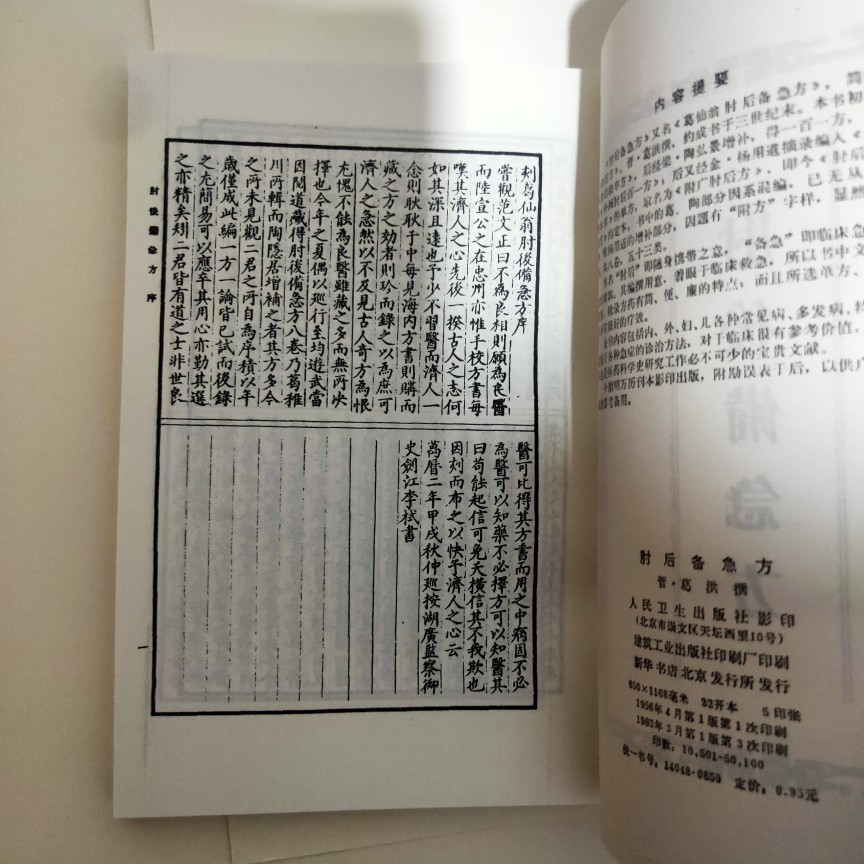 肘後備急方 序
刻葛仙翁肘後備急方序
嘗觀范文正曰不為良相則願為良醫
而陸宣公之在忠州亦惟手校方書每
嘆其濟人之心先後一揆古人之志何
如其深且遠也予少不習醫而濟人一
念則耿耿于中每見海内方書則購而
藏之方之効者則珍而錄之以為庶可
濟人之急然以不及見古人奇方為恨
尤愧不能為良醫雖藏之多而無所决
擇也今年之夏偶以巡行至均遊武當
因閱道藏得肘後備急方八卷乃葛稚
川所輯而陶隱居增補之者其方多今
之所未見觀二君之所自為序積以年
歲僅成此編一方一論皆已試而後錄
之尤簡易可以應卒其用心亦勤其選
之亦精矣矧二君皆有道之士非世良
醫可比得其方書而用之中病固不必
為醫可以知藥不必擇方可以知醫其
曰苟能起信可免夭橫信其不我欺也
因刻而布之以快予濟人之心云
萬曆二年甲戌秋仲巡按湖廣監察御
史劍江李栻書
一
内容提要
肘后备急方》又名《葛仙翁肘后备急方》，简
晋·葛洪撰，约成书于三世纪末。本书初
后经梁·陶弘景增补，得一百一方，
肘后百一方》，后又经金·杨用道摘录编入《
的单方，取名为《附广肘后方》，即今《肘后
的定本。书中的葛、陶部分因系混编，已无从
杨用道的增补部分，因题有“附方”字样，显然
八卷，五十三类。
名“肘后”即随身携带之意，“备急”即临床急
其编撰用意，着眼于临床救急，所以书中文
收录方药有简、便、廉的特点；而且所选单方、
很好的疗效。
内容包括内、外、妇、儿各种常见病、多发病，
各种急症的诊治方法，对于临床很有参考价值，
医药科学史研究工作必不可少的宝贵文献。
明万历刊本影印出版，附勘误表于后，以供广
参考备用。
肘后备急方
晋·葛洪撰
人民卫生出版社影印
(北京市崇文区天坛西里10号)
建筑工业出版社印刷厂印刷
新华书店北京发行所发行
850×1168毫米 32开本 5印张
1956年4月第1版第1次印刷
1982年5月第1版第3次印刷
印数：10,501—50,100
统一书号：14048·0850 定价：0.95元